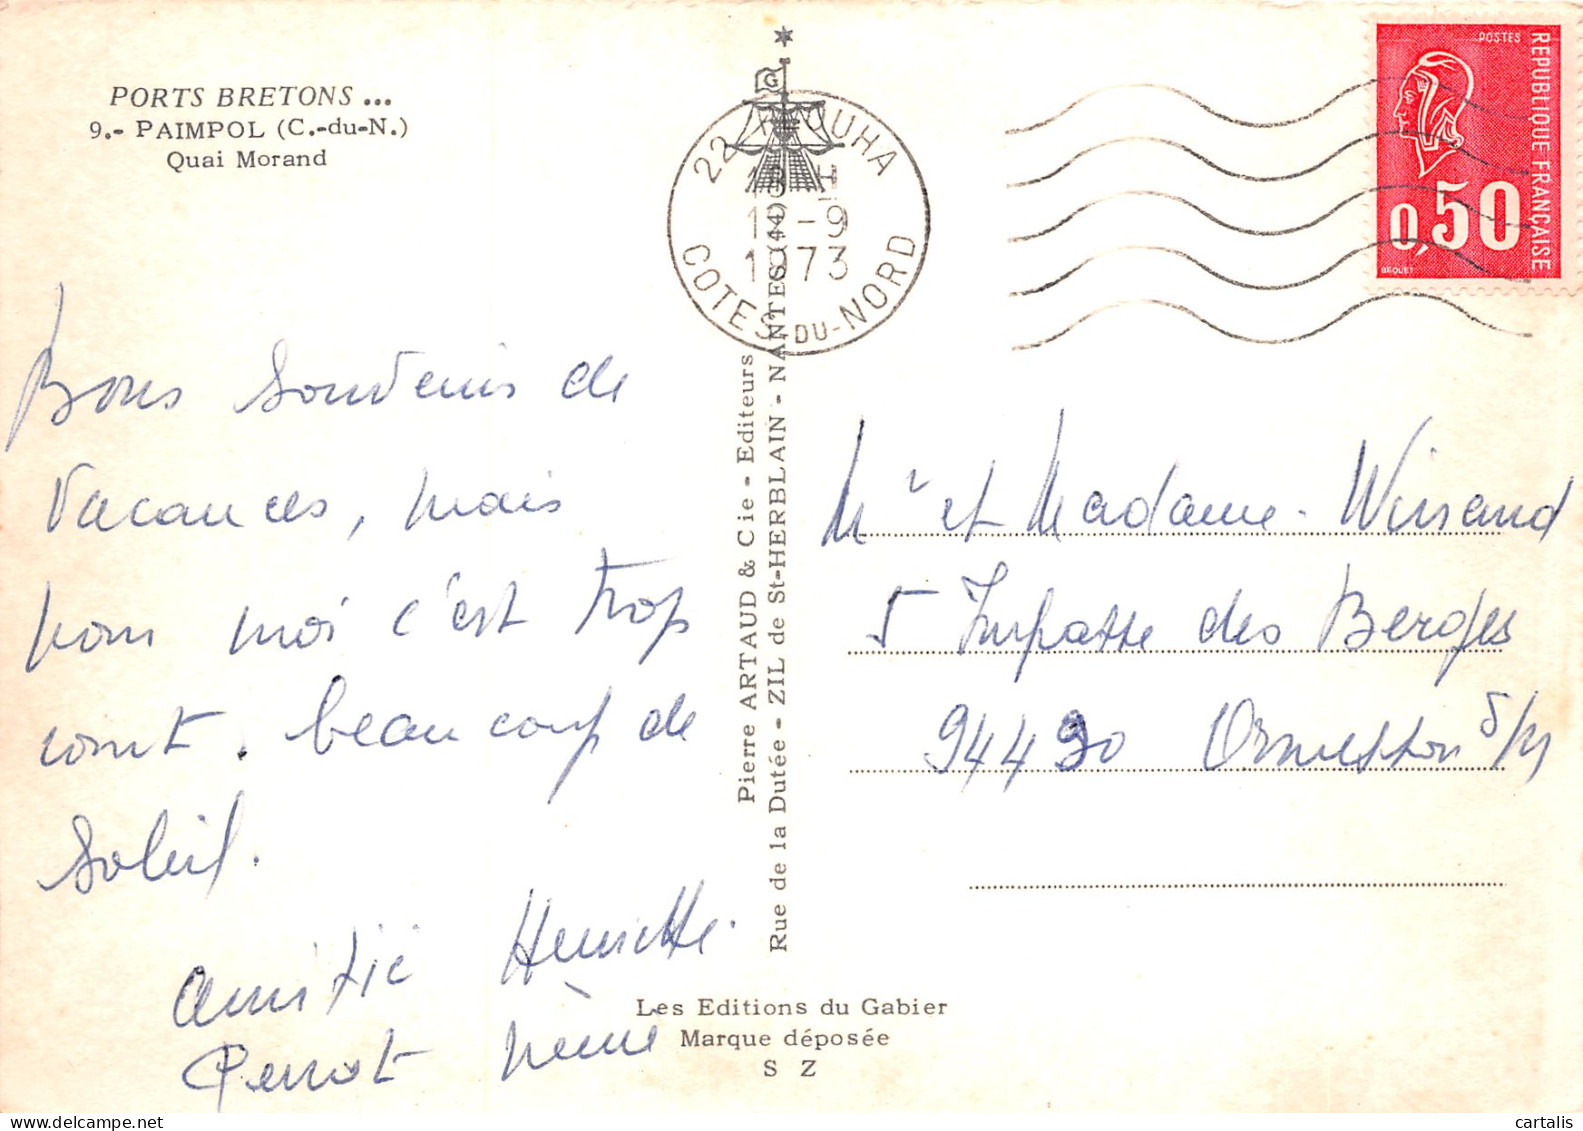 PORTS BRETONS ...
9.- PAIMPOL (C.-du-N.)
Quai Morand
22 PLOUHA
18 H
-9
1973
COTES-DU-NORD
POSTES
REPUBLIQUE FRANÇAISE
0,50
BEQUET
Bons Souvenirs de
Vacances, mais
pour moi c'est trop
court. beaucoup de
Soleil.
Amitié Henriette.
Perrot
Mr et Madame Winsand
5 Impasse des Berges
94490 Ormesson s/M
Pierre ARTAUD & Cie - Editeurs
Rue de la Dutée - ZIL de St-HERBLAIN - NANTES (44)
Les Editions du Gabier
Marque déposée
S Z
G
cartalis